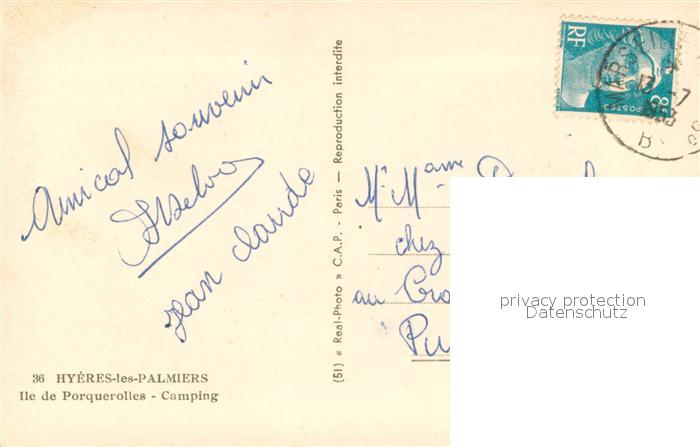 Amical souvenir
Jean Claude
36 HYÈRES-les-PALMIERS
Ile de Porquerolles - Camping
(51) « Real-Photo » C.A.P. - Paris — Reproduction interdite
RF
POSTES
8F
MARSEILLE
13 -7
1953
Mr Mame
chez
au
privacy protection
Datenschutz